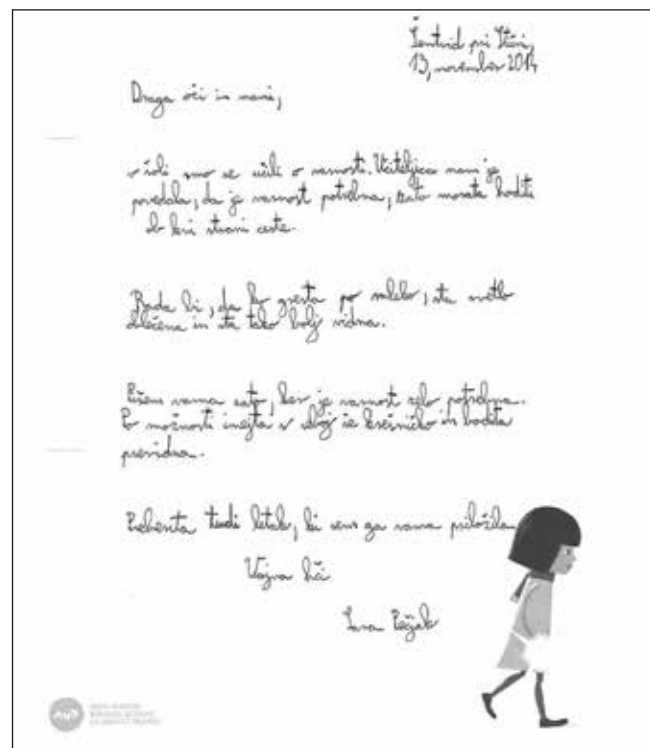 Šentvid pri Stični,
13, november 2014
Draga oči in mami,
v šoli smo se učili o varnosti. Učiteljica nam je
povedala, da je varnost potrebna, zato morata hoditi
ob levi strani ceste.
Rada bi, da ko gresta po mleko, sta svetlo
oblečena in sta tako bolj vidna.
Pišem vama zato, ker je varnost zelo potrebna.
Po možnosti imejta v uboj še kresničko in bodita
previdna.
Preberita tudi letak, ki sem ga vama priložila.
Vajina hči
Lara